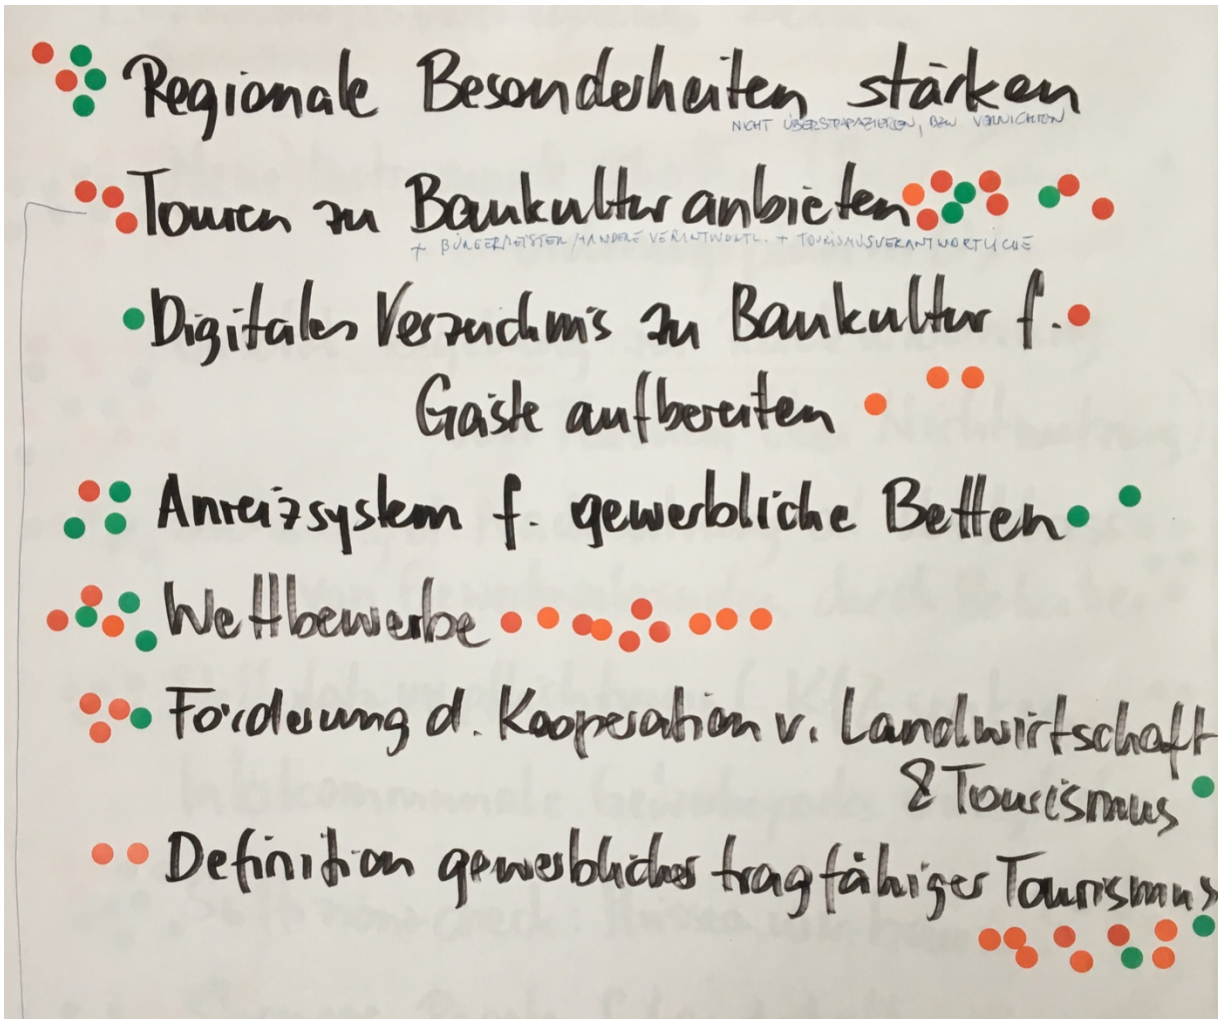 Regionale Besonderheiten stärken
NICHT ÜBERSTRAPAZIEREN, BZW. VERNICHTEN
Touren zu Baukultur anbieten
+ BÜRGERMEISTER/ANDERE VERANTWORTL. + TOURISMUSVERANTWORTLICHE
Digitales Verzeichnis zu Baukultur f.
Gäste aufbereiten
Anreizsystem f. gewerbliche Betten
Wettbewerbe
Förderung d. Kooperation v. Landwirtschaft
& Tourismus
Definition gewerblicher tragfähiger Tourismus